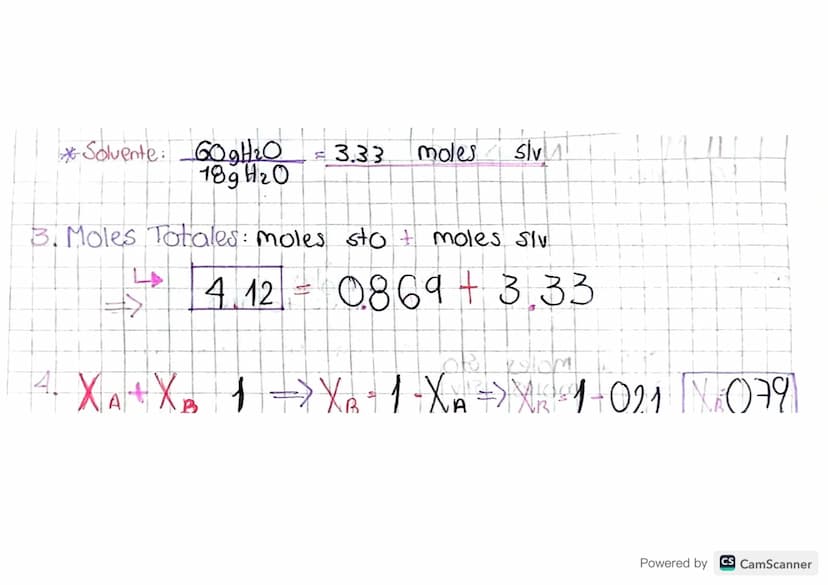 * Solvente: 60gH2O = 3.33 moles slv
18gH2O
3. Moles Totales: moles sto + moles slv
↳ => 4.12 = 0.869 + 3.33
4. XA + XB 1 => XB = 1 - XA => XB = 1 - 021 XB 079
Powered by CS CamScanner